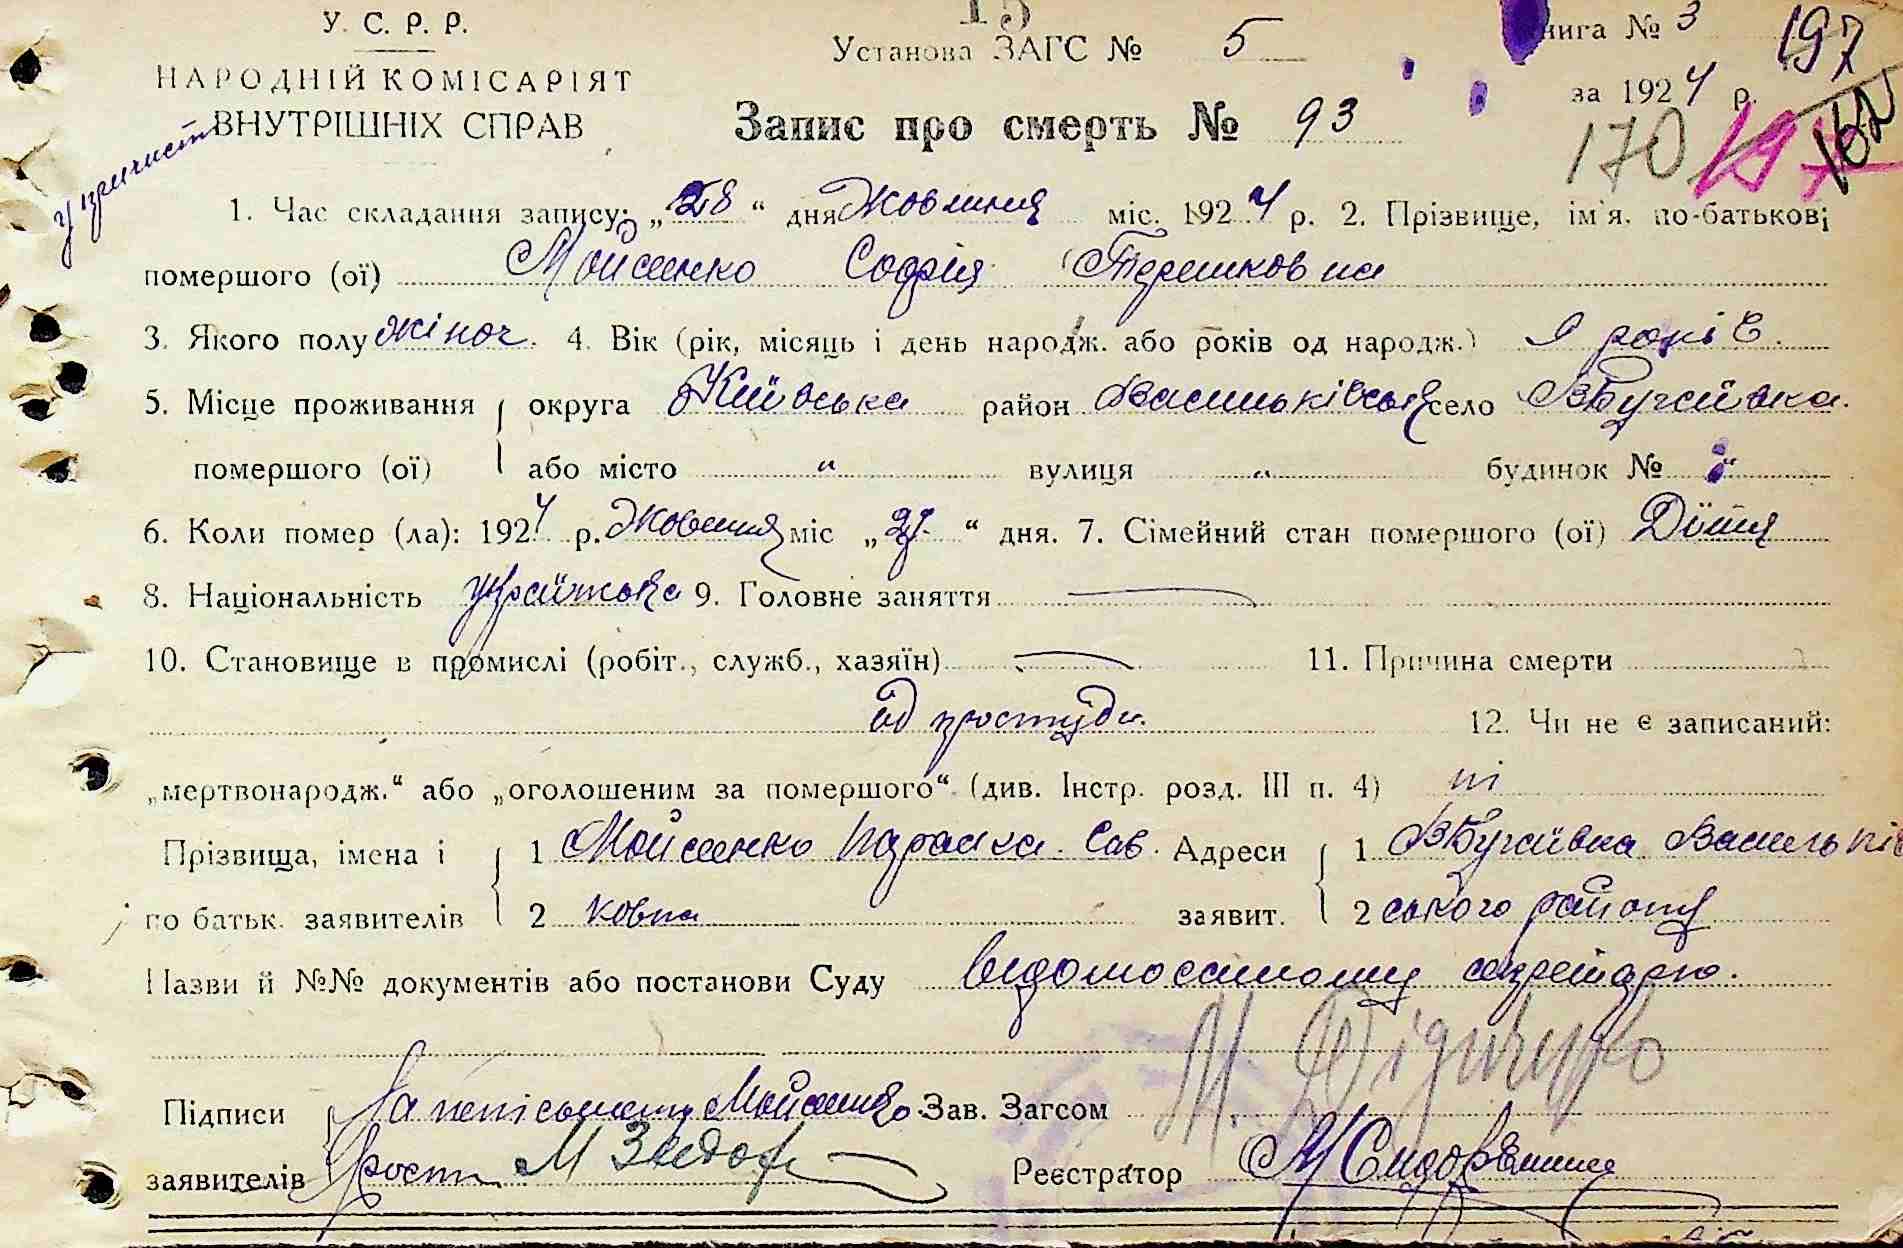 У. С. Р. Р.
НАРОДНІЙ КОМІСАРІЯТ
ВНУТРІШНІХ СПРАВ
15
Установа ЗАГС № 5
Запис про смерть № 93
Книга № 3
за 1924 р.
197
162
170 197
1. Час складання запису: „28“ дня Жовтня міс. 1924 р. 2. Прізвище, ім'я, по-батькові
помершого (ої) Мойсенко Софія Терешковна
3. Якого полу жіноч. 4. Вік (рік, місяць і день народж. або років од народж.) 9 років.
5. Місце проживання { округа Київська район Васильківський село ВБугаївка.
помершого (ої) або місто „ вулиця „ будинок № „
6. Коли помер (ла): 1924 р. Жовтня міс „27.“ дня. 7. Сімейний стан помершого (ої) Дітя
8. Національність українська 9. Головне заняття —
10. Становище в промислі (робіт., служб., хазяїн) — 11. Причина смерти
від простуди. 12. Чи не є записаний:
„мертвонародж.“ або „оголошеним за помершого“ (див. Інстр. розд. III п. 4) ні
Прізвища, імена і { 1 Мойсенко Параска Сав. Адреси { 1 ВБугаївка Васильків
по батьк. заявителів 2 ковна заявит. 2 ського району
Назви й №№ документів або постанови Суду відомо самому секретарю.
Підписи { За неписьменну Мойсенко. Зав. Загсом М. Дідичук
заявителів Рост Реєстратор М Сидор